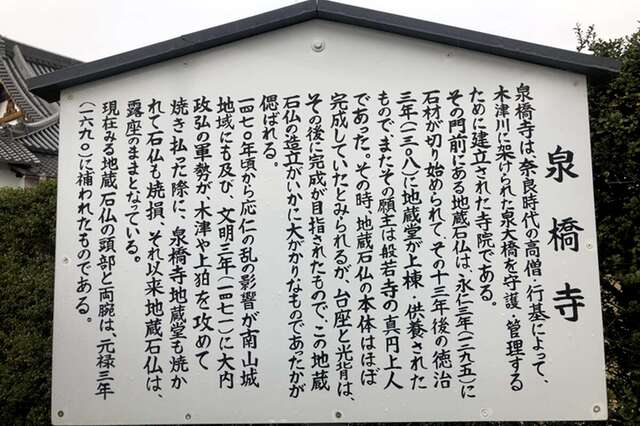 泉橋寺
泉橋寺は、奈良時代の高僧・行基によって、
木津川に架けられた泉大橋を守護・管理する
ために建立された寺院である。
その門前にある地蔵石仏は、永仁三年(一二九五)に
石材が切り始められて、その十三年後の徳治
三年(一三〇八)に地蔵堂が上棟・供養された
ものでまたその願主は般若寺の真円上人
であった。その時、地蔵石仏の本体はほぼ
完成していたとみられるが、台座と光背は、
その後に完成が目指されたもので、この地蔵
石仏の造立がいかに大がかりなものであったかが
偲ばれる。
一四七〇年頃から応仁の乱の影響が南山城
地域にも及び、文明三年(一四七一)に大内
政弘の軍勢が木津や上狛を攻めて
焼き払った際に、泉橋寺地蔵堂も焼か
れて石仏も焼損、それ以来地蔵石仏は、
露座のままとなっている。
現在みる地蔵石仏の頭部と両腕は、元禄三年
(一六九〇)に補われたものである。